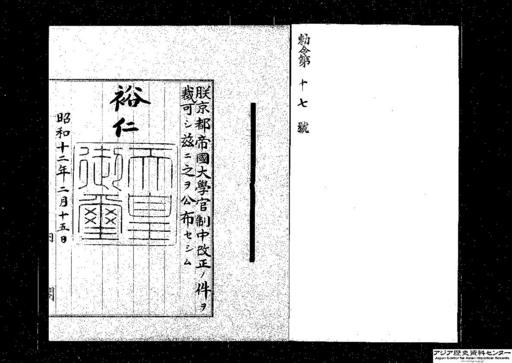 勅令第十七號
朕京都帝國大學官制中改正ノ件ヲ
裁可シ玆ニ之ヲ公布セシム
裕仁
天皇御璽
昭和十二年二月十五日
アジア歴史資料センター
Japan Center for Asian Historical Records